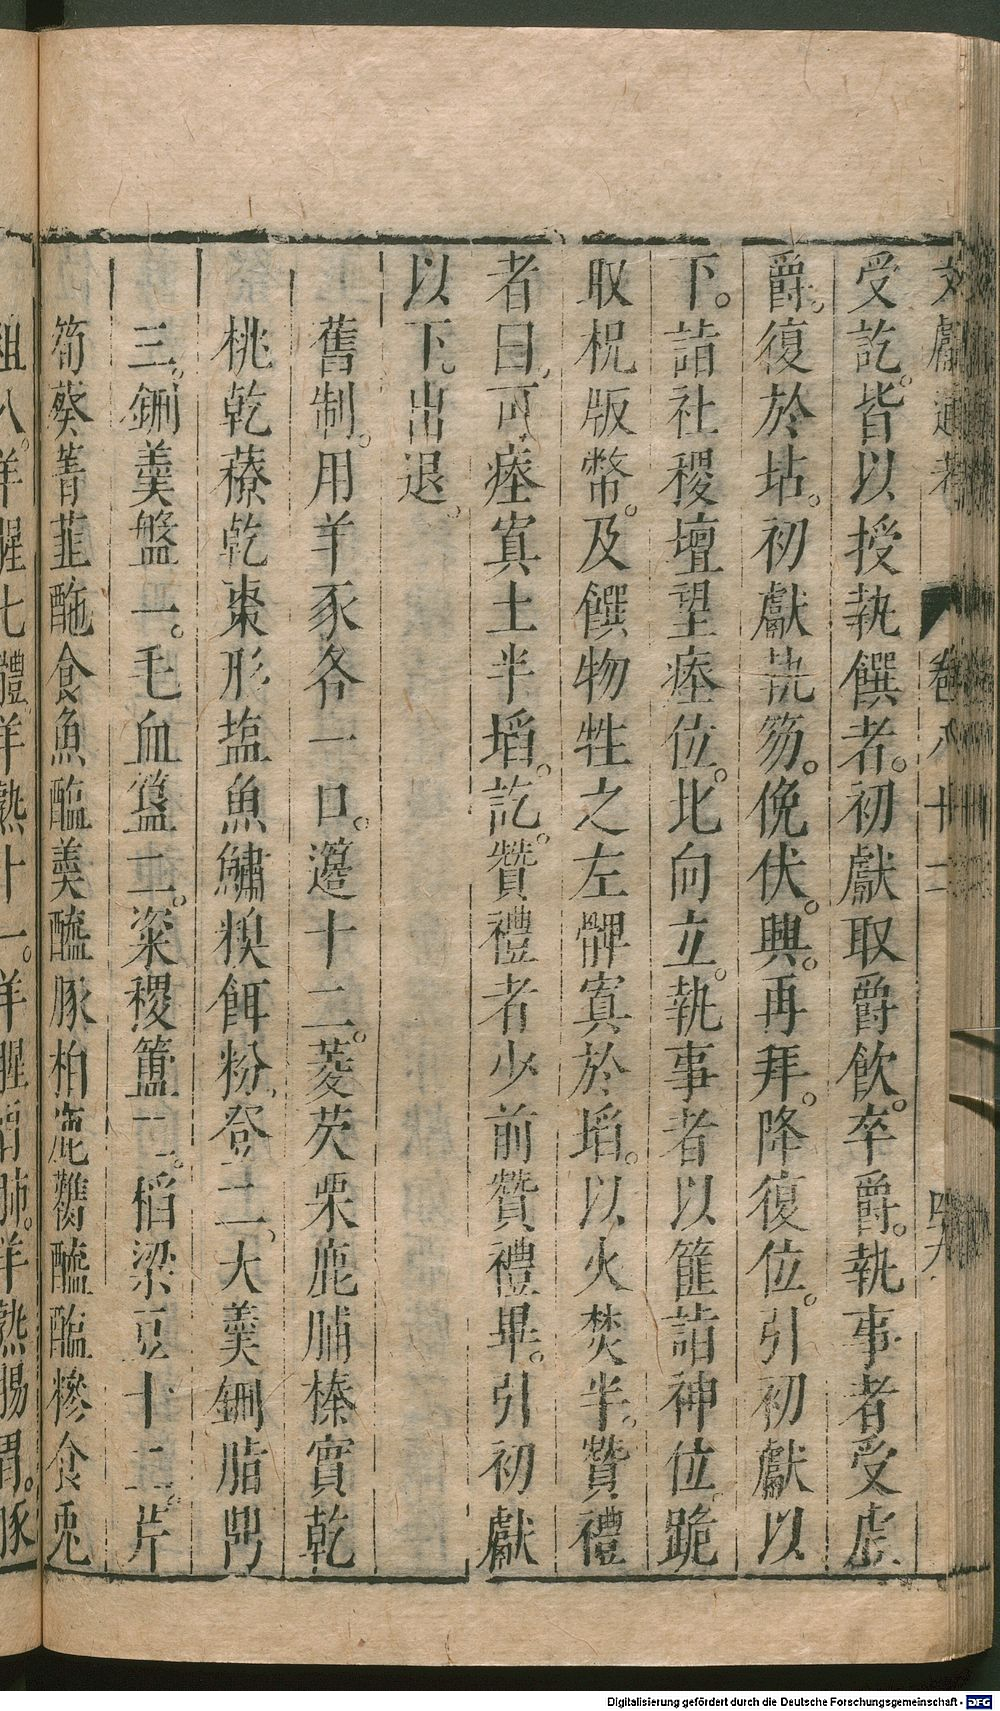 文獻通考 卷八十二
受訖。皆以授執饌者。初獻取爵飲。卒爵。執事者受虛
爵。復於坫。初獻執笏。俛伏。興。再拜。降復位。引初獻以
下。詣社稷壇望瘞位。北向立。執事者以篚詣神位。跪
取祝版幣。及饌物牲之左髀寘於埳。以火焚半。贊禮
者曰。可瘞。寘土半埳。訖。贊禮者少前贊禮畢。引初獻
以下。出退。
舊制。用羊豕各一口。籩十二。菱芡栗鹿脯榛實乾
桃乾䕩乾棗形塩魚鱐糗餌粉餈。登二。大羹鉶脂䏑
三。鉶羹盤一。毛血簋二。粢稷簠二。稻梁豆十二。芹
筍葵菁韮酏食魚醢羹醓豚柏鹿臡醓醢糝食兎
俎八。羊腥七體羊熟十一。羊腥胃肺。羊熟腸胃。豚
Digitalisierung gefördert durch die Deutsche Forschungsgemeinschaft - DFG